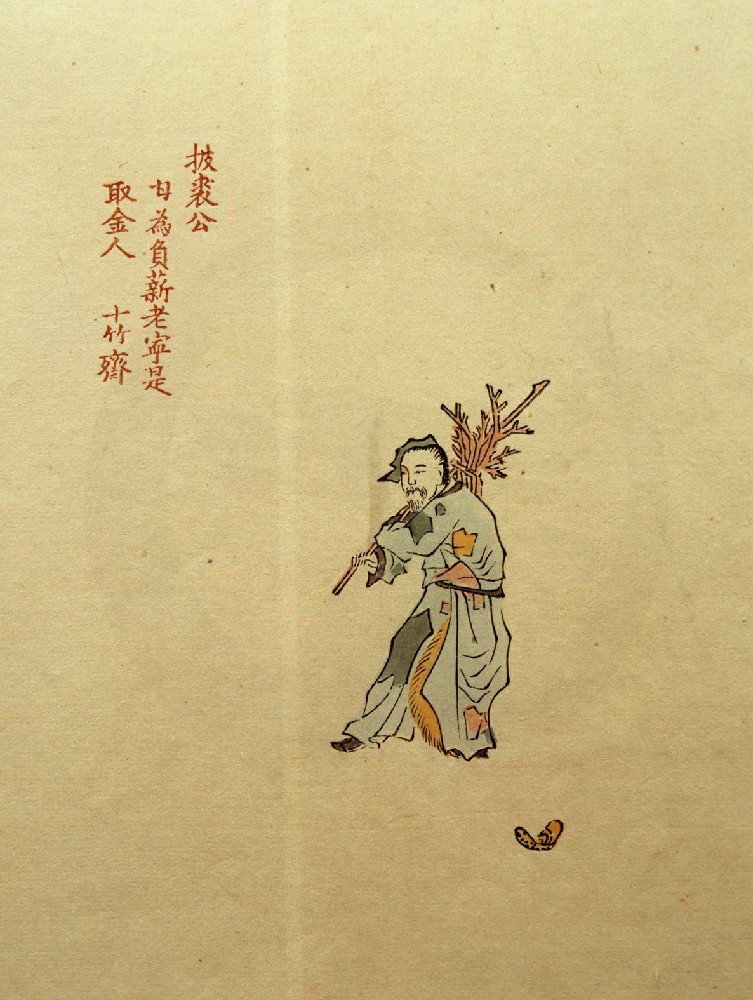 披裘公
甘為負薪老寧是
取金人 十竹齋